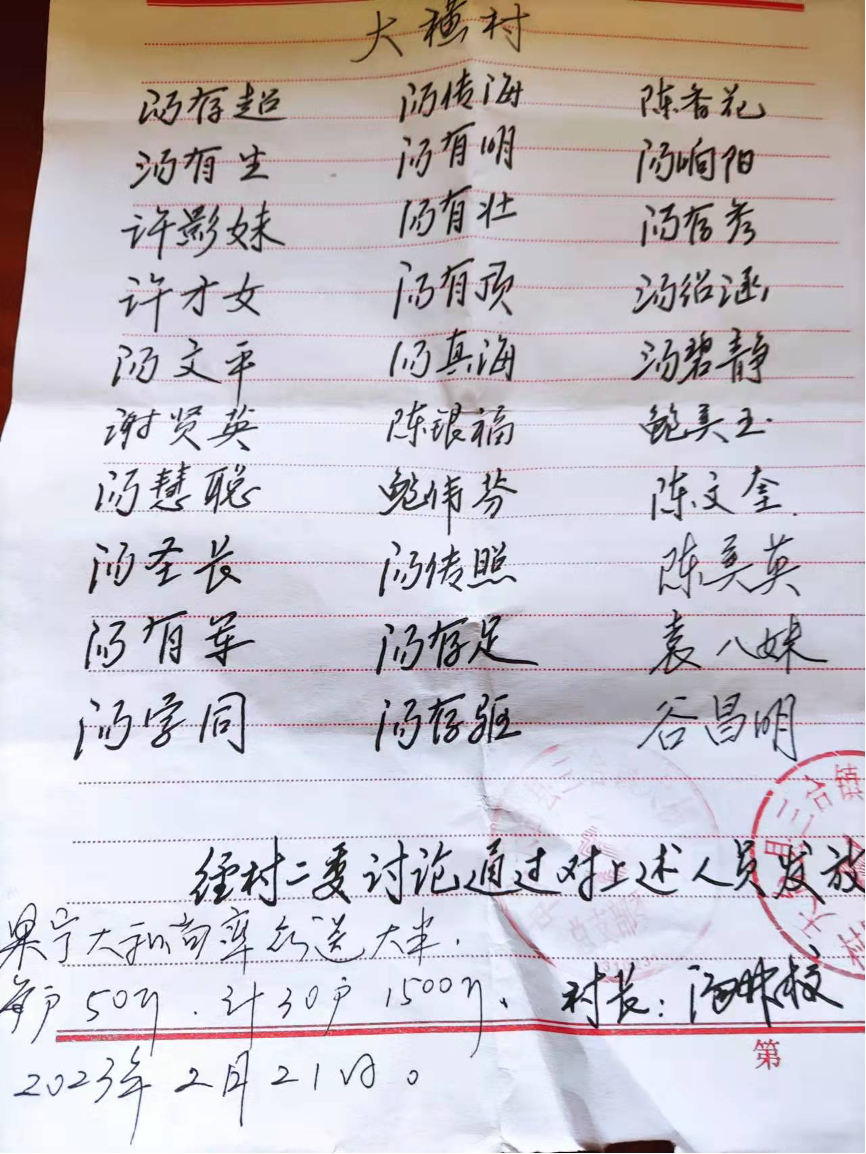 大横村
汤存超 汤传海 陈香花
汤有生 汤有明 汤响阳
许影妹 汤有壮 汤存秀
许才女 汤有顶 汤绍涵
汤文平 汤真海 汤碧静
谢贤英 陈银福 鲍美玉
汤慧聪 鲍伟芬 陈文奎
汤圣长 汤传照 陈美英
汤有军 汤存足 袁八妹
汤学同 汤存驱 谷昌明
经村二委讨论通过对上述人员发放
果宁大和尚率众送大米.
每户50斤.计30户1500斤.
村长:汤
第
2023年2月21日。
县三合镇